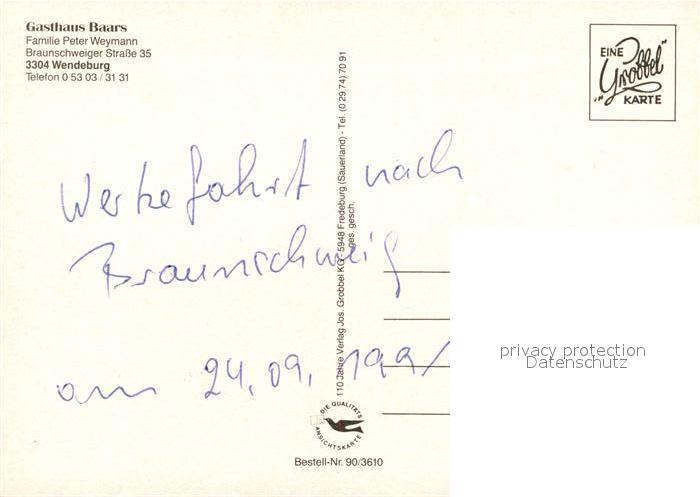 Gasthaus Baars
Familie Peter Weymann
Braunschweiger Straße 35
3304 Wendeburg
Telefon 0 53 03 / 31 31
EINE
"Grobbel"
KARTE
Werkefahrt nach
Braunschweig
am 24.09.1991
110 Jahre Verlag Jos. Grobbel KG · 5948 Fredeburg (Sauerland) - Tel. (0 29 74) 70 91
ges. gesch.
DIE QUALITÄTS
ANSICHTSKARTE
Bestell-Nr. 90/3610
privacy protection
Datenschutz